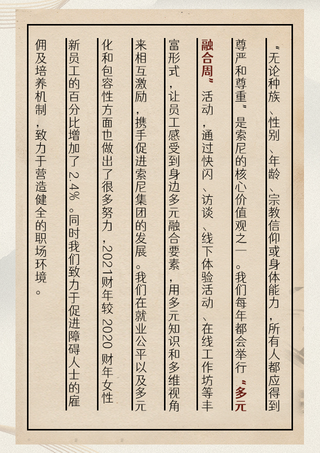 “无论种族、性别、年龄、宗教信仰或身体能力，所有人都应得到
尊严和尊重”是索尼的核心价值观之一。我们每年都会举行“多元
融合周”活动，通过快闪、访谈、线下体验活动、在线工作坊等丰
富形式，让员工感受到身边多元融合要素，用多元知识和多维视角
来相互激励，携手促进索尼集团的发展。我们在就业公平以及多元
化和包容性方面也做出了很多努力，2021财年较2020财年女性
新员工的百分比增加了2.4%。同时我们致力于促进障碍人士的雇
佣及培养机制，致力于营造健全的职场环境。